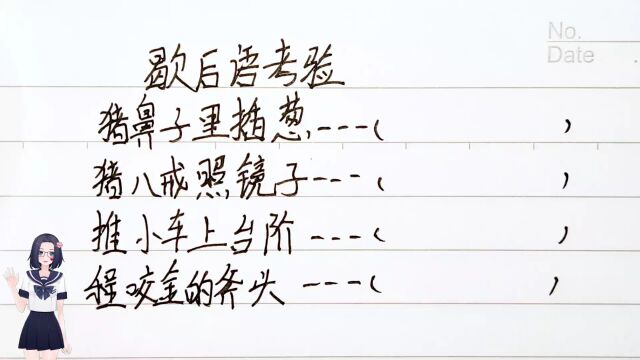 No.
Date
歇后语考验
猪鼻子里插葱---( )
猪八戒照镜子---( )
推小车上台阶---( )
程咬金的斧头---( )